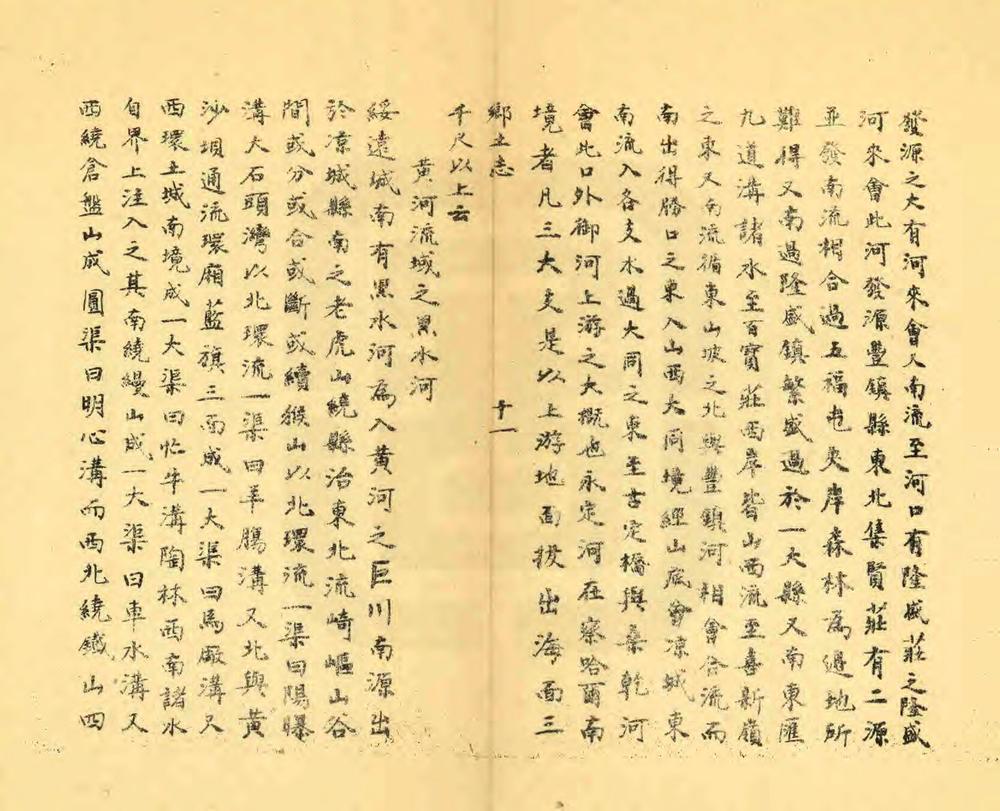 發源之大有河來會又南流至河口有隆盛莊之隆盛
河來會此河發源豐鎮縣東北集賢莊有二源
並發南流相合過五福屯夾岸森林為邊地所
難得又南過隆盛鎮繁盛過於一大縣又南東匯
九道溝諸水至百寶莊西岸皆山西流至喜新嶺
之東又南流循東山坡之北與豐鎮河相會合流而
南出得勝口之東入山西大同境經山底會凉城東
南流入各支水過大同之東至古定橋與桑乾河
會此口外御河上游之大概也永定河在察哈爾南
境者凡三大支是以上游地面拔出海面三
鄉土志
十一
千尺以上云
黃河流域之黑水河
綏遠城南有黑水河為入黃河之巨川南源出
於凉城縣南之老虎山繞縣治東北流崎嶇山谷
間或分或合或斷或續猴山以北環流一渠曰陽曝
溝大石頭灣以北環流一渠曰羊腸溝又北與黃
沙埧通流環廂藍旗三面成一大渠曰馬廠溝又
西環土城南境成一大渠曰忙牛溝陶林西南諸水
自界上注入之其南繞縵山成一大渠曰車水溝又
西繞倉盤山成圓渠曰明心溝而西北繞鐵山四